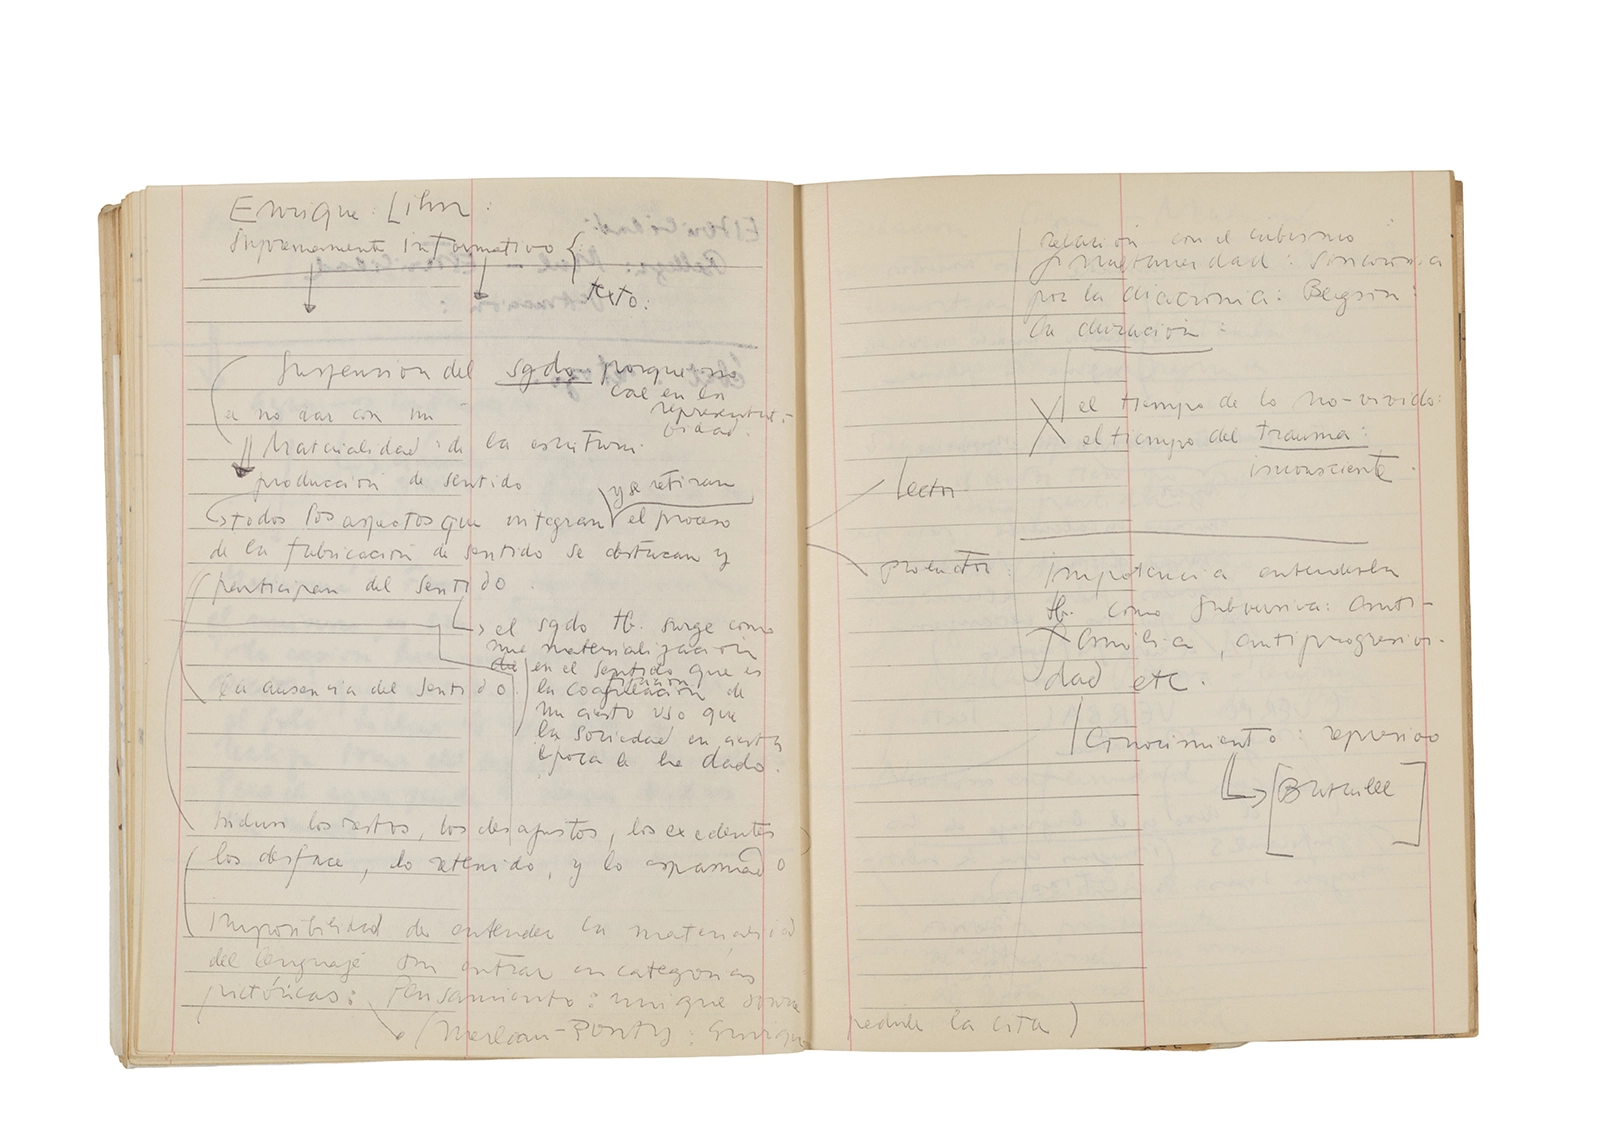 Enrique Lihn:
Supremamente informativo {
texto:
Suspensión del sgdo porque no
cae en la
representati-
bidad.
o no dar con un
Materialidad: de la escritura
producción de sentido
y se retiran
todos los aspectos que integran el proceso
de la fabricación de sentido se destacan y
participan del sentido.
el sgdo tb. surge como
una materialización
en el sentido que es
la coagulación de
un cierto uso que
la sociedad en cierta
época le ha dado.
la ausencia del sentido.
incluso los restos, los desajustes, los excedentes
los desface, lo retenido, y lo espasmado
Imposibilidad de entender la materialidad
del lenguaje sin entrar en categorías
pictóricas: pensamiento:
(Merleau-Ponty: Enrique
la cita)
relación con el cubismo
simultaneidad: sincronía
por la diacronía: Bergson:
la duración:
el tiempo de lo no-vivido:
el tiempo del trauma:
inconsciente.
Lector
productor: Impotencia entenderla
tb. como subversiva: anti-
familia, antiprogresivi-
dad etc.
Conocimiento: represivo
[Bataille]